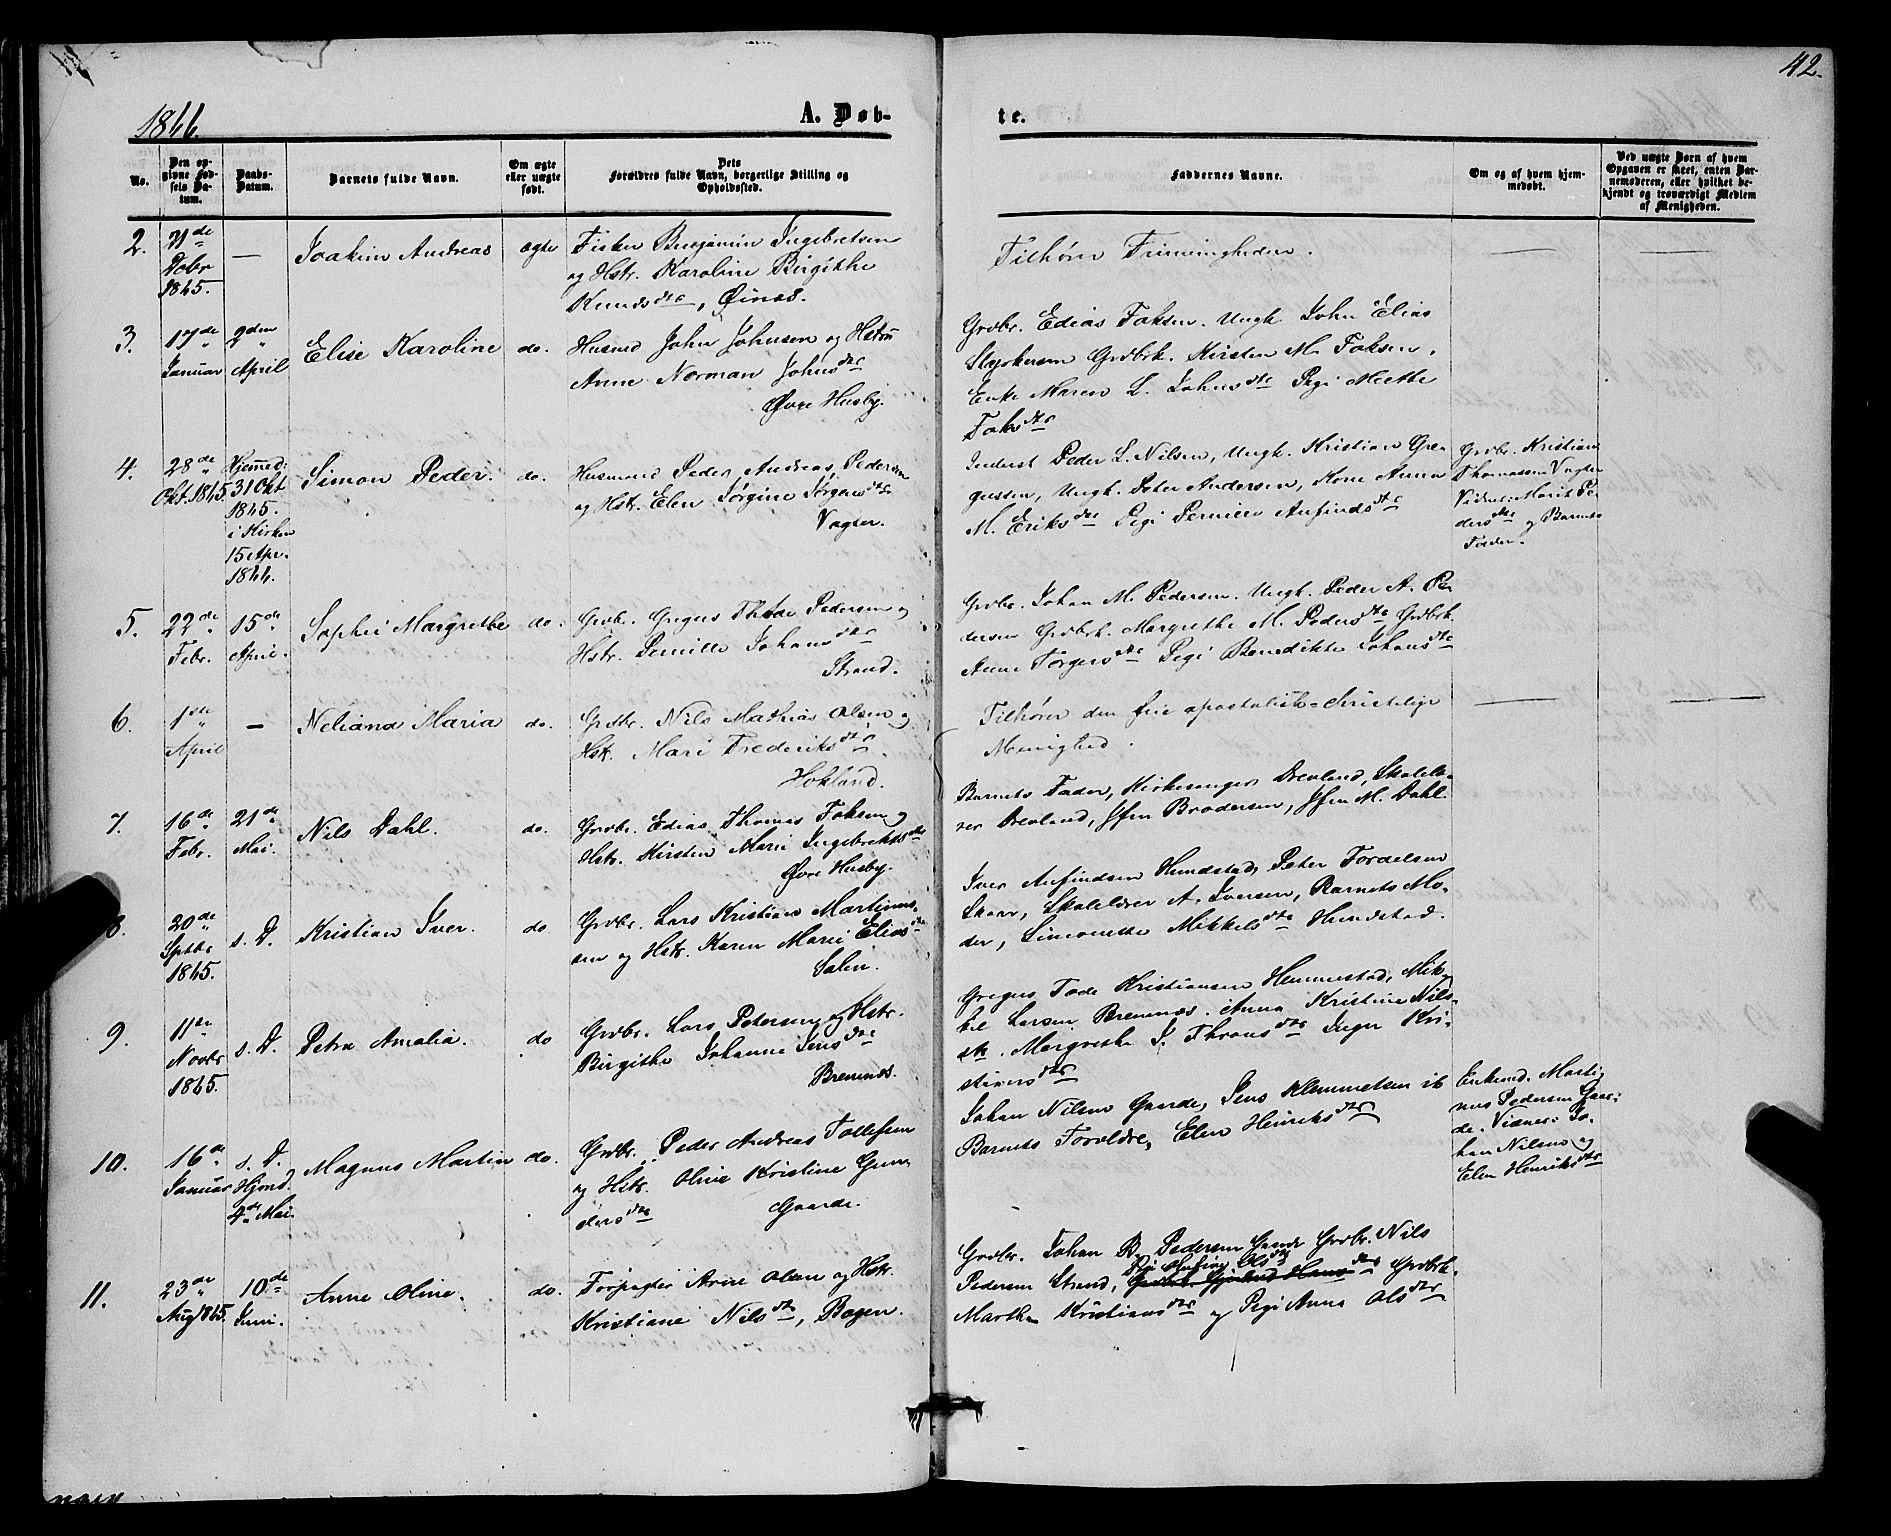 42.
1866.
A. Døb-
te.
No.
Den op-
givne Fød-
sels Da-
tum.
Daabs-
Datum.
Barnets fulde Navn.
Om ægte
eller uægte
født.
Dets
Forældres fulde Navn, borgerlige Stilling og
Opholdssted.
Faddernes Navne.
Om og af hvem hjem-
medøbt.
Ved uægte Børn af hvem
Opgaven er skeet, enten Bar-
nemoderen, eller hvilket be-
kjendt og troværdigt Medlem
af Menigheden.
2.
Debr
1865.
—
Joakim Andreas
ægte
Fisker Benjamin Ingebretsen
og Hstr. Karoline Birgithe
Knudsdtr, Øinæs.
Tilhører Frimenigheden.
3.
17de
Januar
2den
April
Elise Karoline
do.
Husmd John Johnsen og Hstru
Anne Norman Johnsdtr
Øvre Husby.
Grdbr. Edias Foksen. Ungk. John Elias
Grdbrk. Kirsten M. Foksen.
Enke Maren L. Johnsdtr Pigi Merthe
Foksdtr
4.
28de
Okt. 1865
Hjemmed:
31 Okt
1865.
i Kirken
15 Apr.
1866.
Simon Peder.
do.
Husmand Peder Andreas Pedersen
og Hstr. Elen Jørgine Jørgensdtr
Vogter.
Inderst Peder L. Nilsen, Ungk. Kristian Gre-
gussen, Ungk. Peter Andersen, Kone Anna
M. Eriksdtr Pigi Pernille Anfindsdtr
Grdbr. Kristian
Thomassen Vogter
Vidner: Marit Pe-
dersdtr og Barnets
Fader.
5.
22de
Febr.
15de
April.
Sophie Margrethe
do.
Grdbr. Gregus Thode Pedersen og
Hstr. Pernille Johansdtr
Strand.
Grdbr. Johan M. Pedersen. Ungk. Peder A. Pe-
dersen Grdbrk. Margrethe M. Pedersdtr Grdbrk.
Anne Torgersdtr Pigi Benedikte Johansdtr
6.
1ste
April
—
Neliana Maria
do.
Grdbr. Nils Mathias Olsen og
Hstr. Mari Frederiksdtr
Hokland.
Tilhører den frie apostolisk-christelige
Menighed.
7.
16de
Febr.
21de
Mai.
Nils Dahl.
do.
Grdbr. Edias Thomas Foksen og
Hstr. Kirsten Marie Ingebrektsdtr
Øvre Husby.
Barnets Fader, Kirkesanger Drevland, Skolelæ-
rer Drevland, Jfen Brodersen, Jfen M. Dahl.
8.
20de
Septbr
1865.
s. D.
Kristian Iver.
do
Grdbr. Lars Kristian Martinus-
sen og Hstr. Karen Marie Eliasdtr
Salen.
Iver Anfindsen Hundstad, Peter Tordelsen
Skaar, Skolelærer A. Iversen, Barnets Mo-
der, Simonette Mikkelsdtr Hundstad.
9.
11te
Novbr
1865.
s. D.
Petra Amalia.
do
Grdbr. Lars Petersen og Hstr.
Birgithe Johanne Jensdtr
Bremnes.
Gregus Tode Kristiansen Hemmestad, Mik-
kel Larsen Bremnes. Anna Kristine Nils-
dtr. Margrethe J. Thronsdtr Inger Kri-
stiansdtr
10.
16de
Januar
s. D.
Hjmd.
4de Mai.
Magnus Martin
do.
Grdbr. Peder Andreas Tollefsen
og Hstr. Oline Kristine Gun-
dersdtr Gaarde.
Johan Nilsen Gaarde, Jens Klemmetsen ib
Barnets Forældre, Elen Henriksdtr
Enkemd. Marti-
nus Pedersen Gaar-
de. Vidner: Jo-
han Nilsen og
Elen Henriksdtr
11.
23de
Aug 1865.
10de
Juni.
Anne Oline.
do.
Forpagter Arne Olsen og Hstr.
Kristiane Nilsdtr, Bogen.
Grdbr. Johan B. Pedersen Grdbr. Nils
Pedersen Strand, Grdbrk.
Marthe Kristiansdtr og Pigi Anna Olsdtr